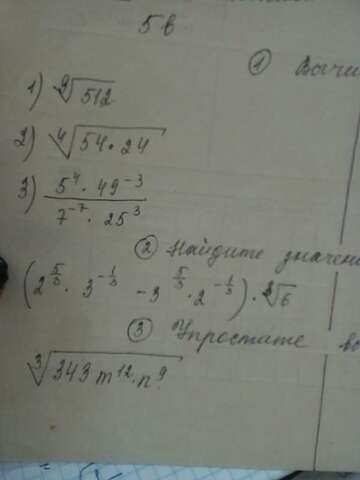 5 в
① Вычи
1) ⁹√512
2) ⁴√54·24
3) 5⁴·49⁻³ / 7⁻⁷·25³
② Найдите значени
(2^(5/3)·3^(-1/3) - 3^(5/3)·2^(-1/3))·³√6
③ Упростите
³√343m¹²·n⁹